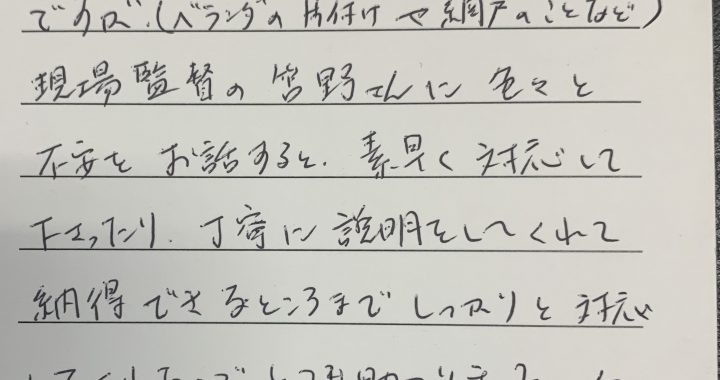 ですが、(ベランダの片付けや網戸のことなど)
現場監督の宮野さんに色々と
不安をお話すると、素早く対応して
下さったり、丁寧に説明をしてくれて
納得できるところまでしっかりと対応